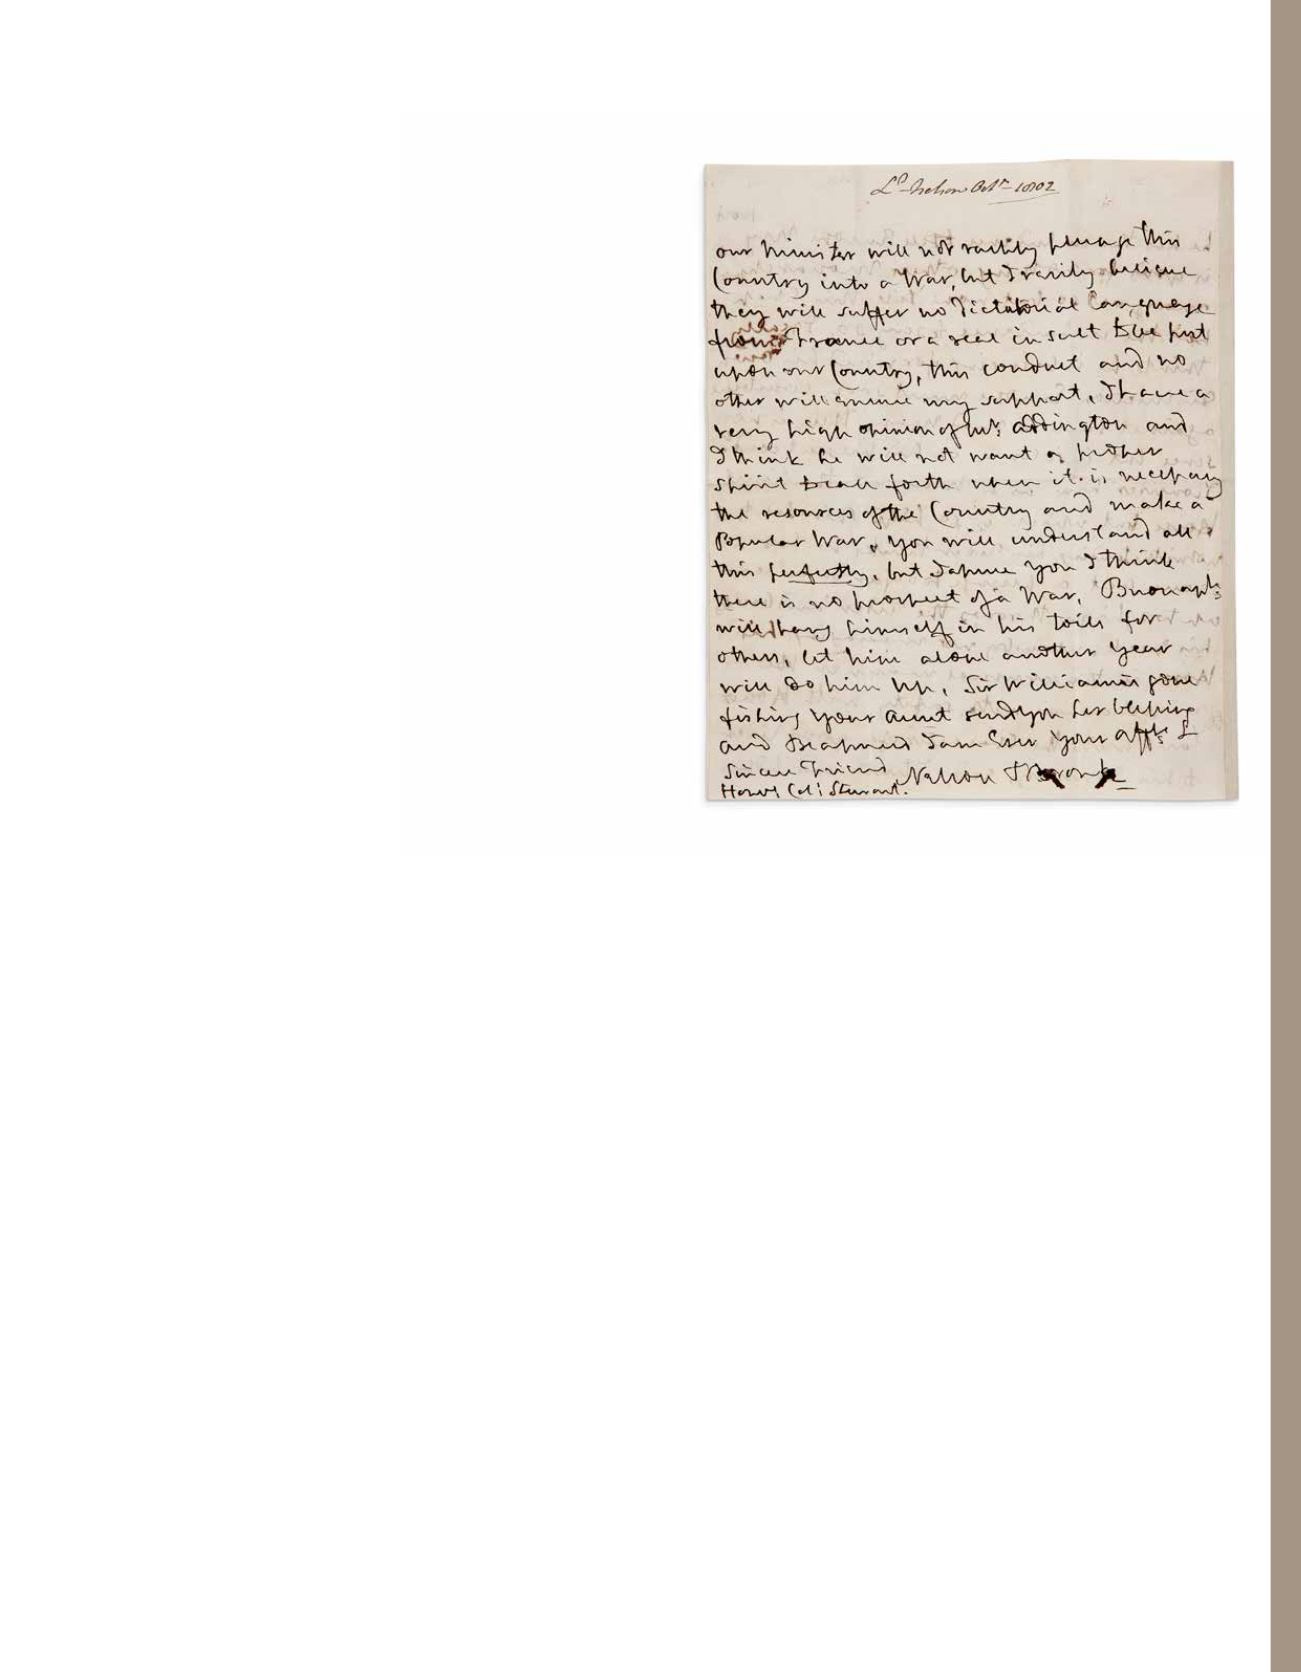 Ld. Nelson Octr. 1802
our Minister will not rashly plunge this
Country into a War, but I verily believe
they will suffer no Dictatorial Language
from France or a real insult to be put
upon our Country, this conduct and no
other will ensure my support, I have a
very high opinion of Mr. Addington and
I think he will not want a proper
spirit to call forth when it is necessary
the resources of the Country and make a
Popular War, you will understand all
this perfectly, but I assure you I think
there is no prospect of a War, Buonapte
will hang himself in his toils for
others, let him alone another year
will do him up, Sir William is gone
fishing your aunt sends you her blessing
and Be assured I am Ever your affte. &
Sincere Friend, Nelson & Bronte
Honl. Col: Stewart.